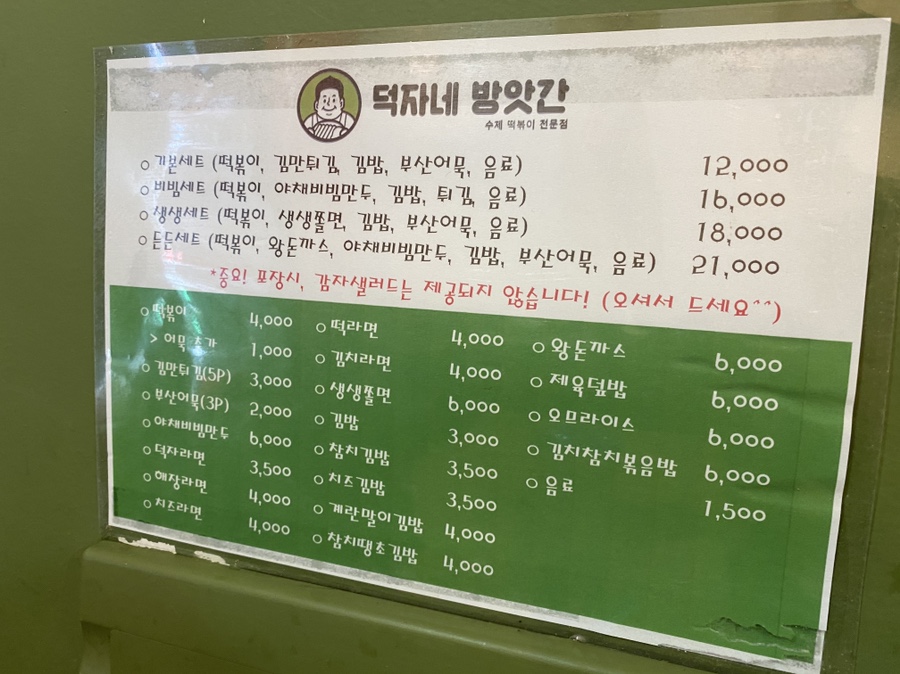 덕자네 방앗간
수제 떡볶이 전문점
기본세트 (떡볶이, 김만튀김, 김밥, 부산어묵, 음료) 12,000
비빔세트 (떡볶이, 야채비빔만두, 김밥, 튀김, 음료) 16,000
생생세트 (떡볶이, 생생쫄면, 김밥, 부산어묵, 음료) 18,000
든든세트 (떡볶이, 왕돈까스, 야채비빔만두, 김밥, 부산어묵, 음료) 21,000
*중요! 포장시, 감자샐러드는 제공되지 않습니다! (오셔서 드세요^^)
떡볶이 4,000
> 어묵 추가 1,000
김만튀김(5P) 3,000
부산어묵(3P) 2,000
야채비빔만두 6,000
덕자라면 3,500
해장라면 4,000
치즈라면 4,000
떡라면 4,000
김치라면 4,000
생생쫄면 6,000
김밥 3,000
참치김밥 3,500
치즈김밥 3,500
계란말이김밥 4,000
참치땡초김밥 4,000
왕돈까스 6,000
제육덮밥 6,000
오므라이스 6,000
김치참치볶음밥 6,000
음료 1,500